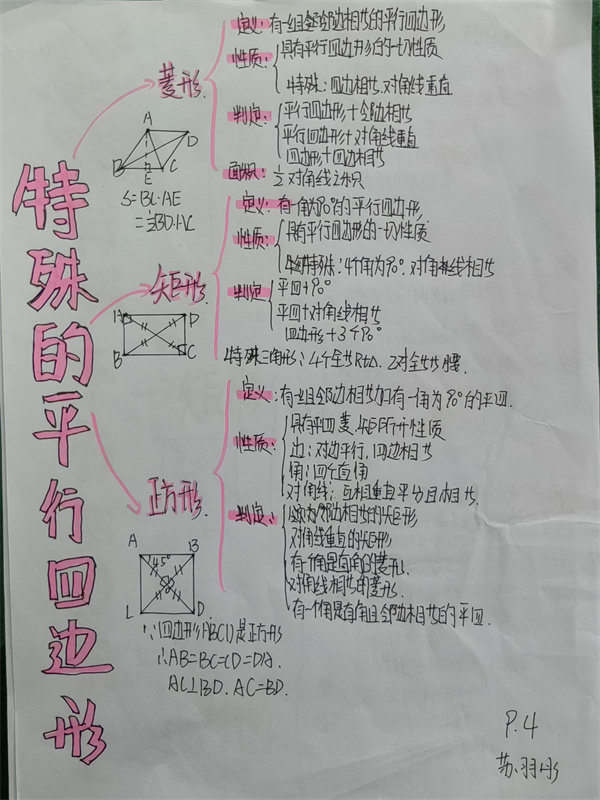 特殊的平行四边形
菱形.
定义:有一组邻边相等的平行四边形
性质:
具有平行四边形的一切性质
特殊:四边相等.对角线垂直
判定:
平行四边形+邻边相等
平行四边形+对角线垂直
四边形+四边相等
面积:½对角线之积
A
D
B
C
E
S=BC·AE
=½BD·AC
矩形.
定义:有一角为90°的平行四边形.
性质:
具有平行四边形的一切性质
特殊:4个角为90°.对角线相等
判定
平四+90°
平四+对角线相等
四边形+3个90°
特殊三角形:4个全等Rt△.2对全等等腰.
A
D
B
C
正方形.
定义:有一组邻边相等加有一角为90°的平四.
性质:
具有平四.菱.矩所有性质
边:对边平行,四边相等
角:四个直角
对角线:互相垂直平分且相等.
判定:
邻边相等的矩形
对角线垂直的矩形
有一个角是直角的菱形.
对角线相等的菱形.
有一个角是直角且邻边相等的平四
A
B
45°
L
D
∵四边形ABCD是正方形
∴AB=BC=CD=DA.
AC⊥BD. AC=BD.
P.4
苏羽彤